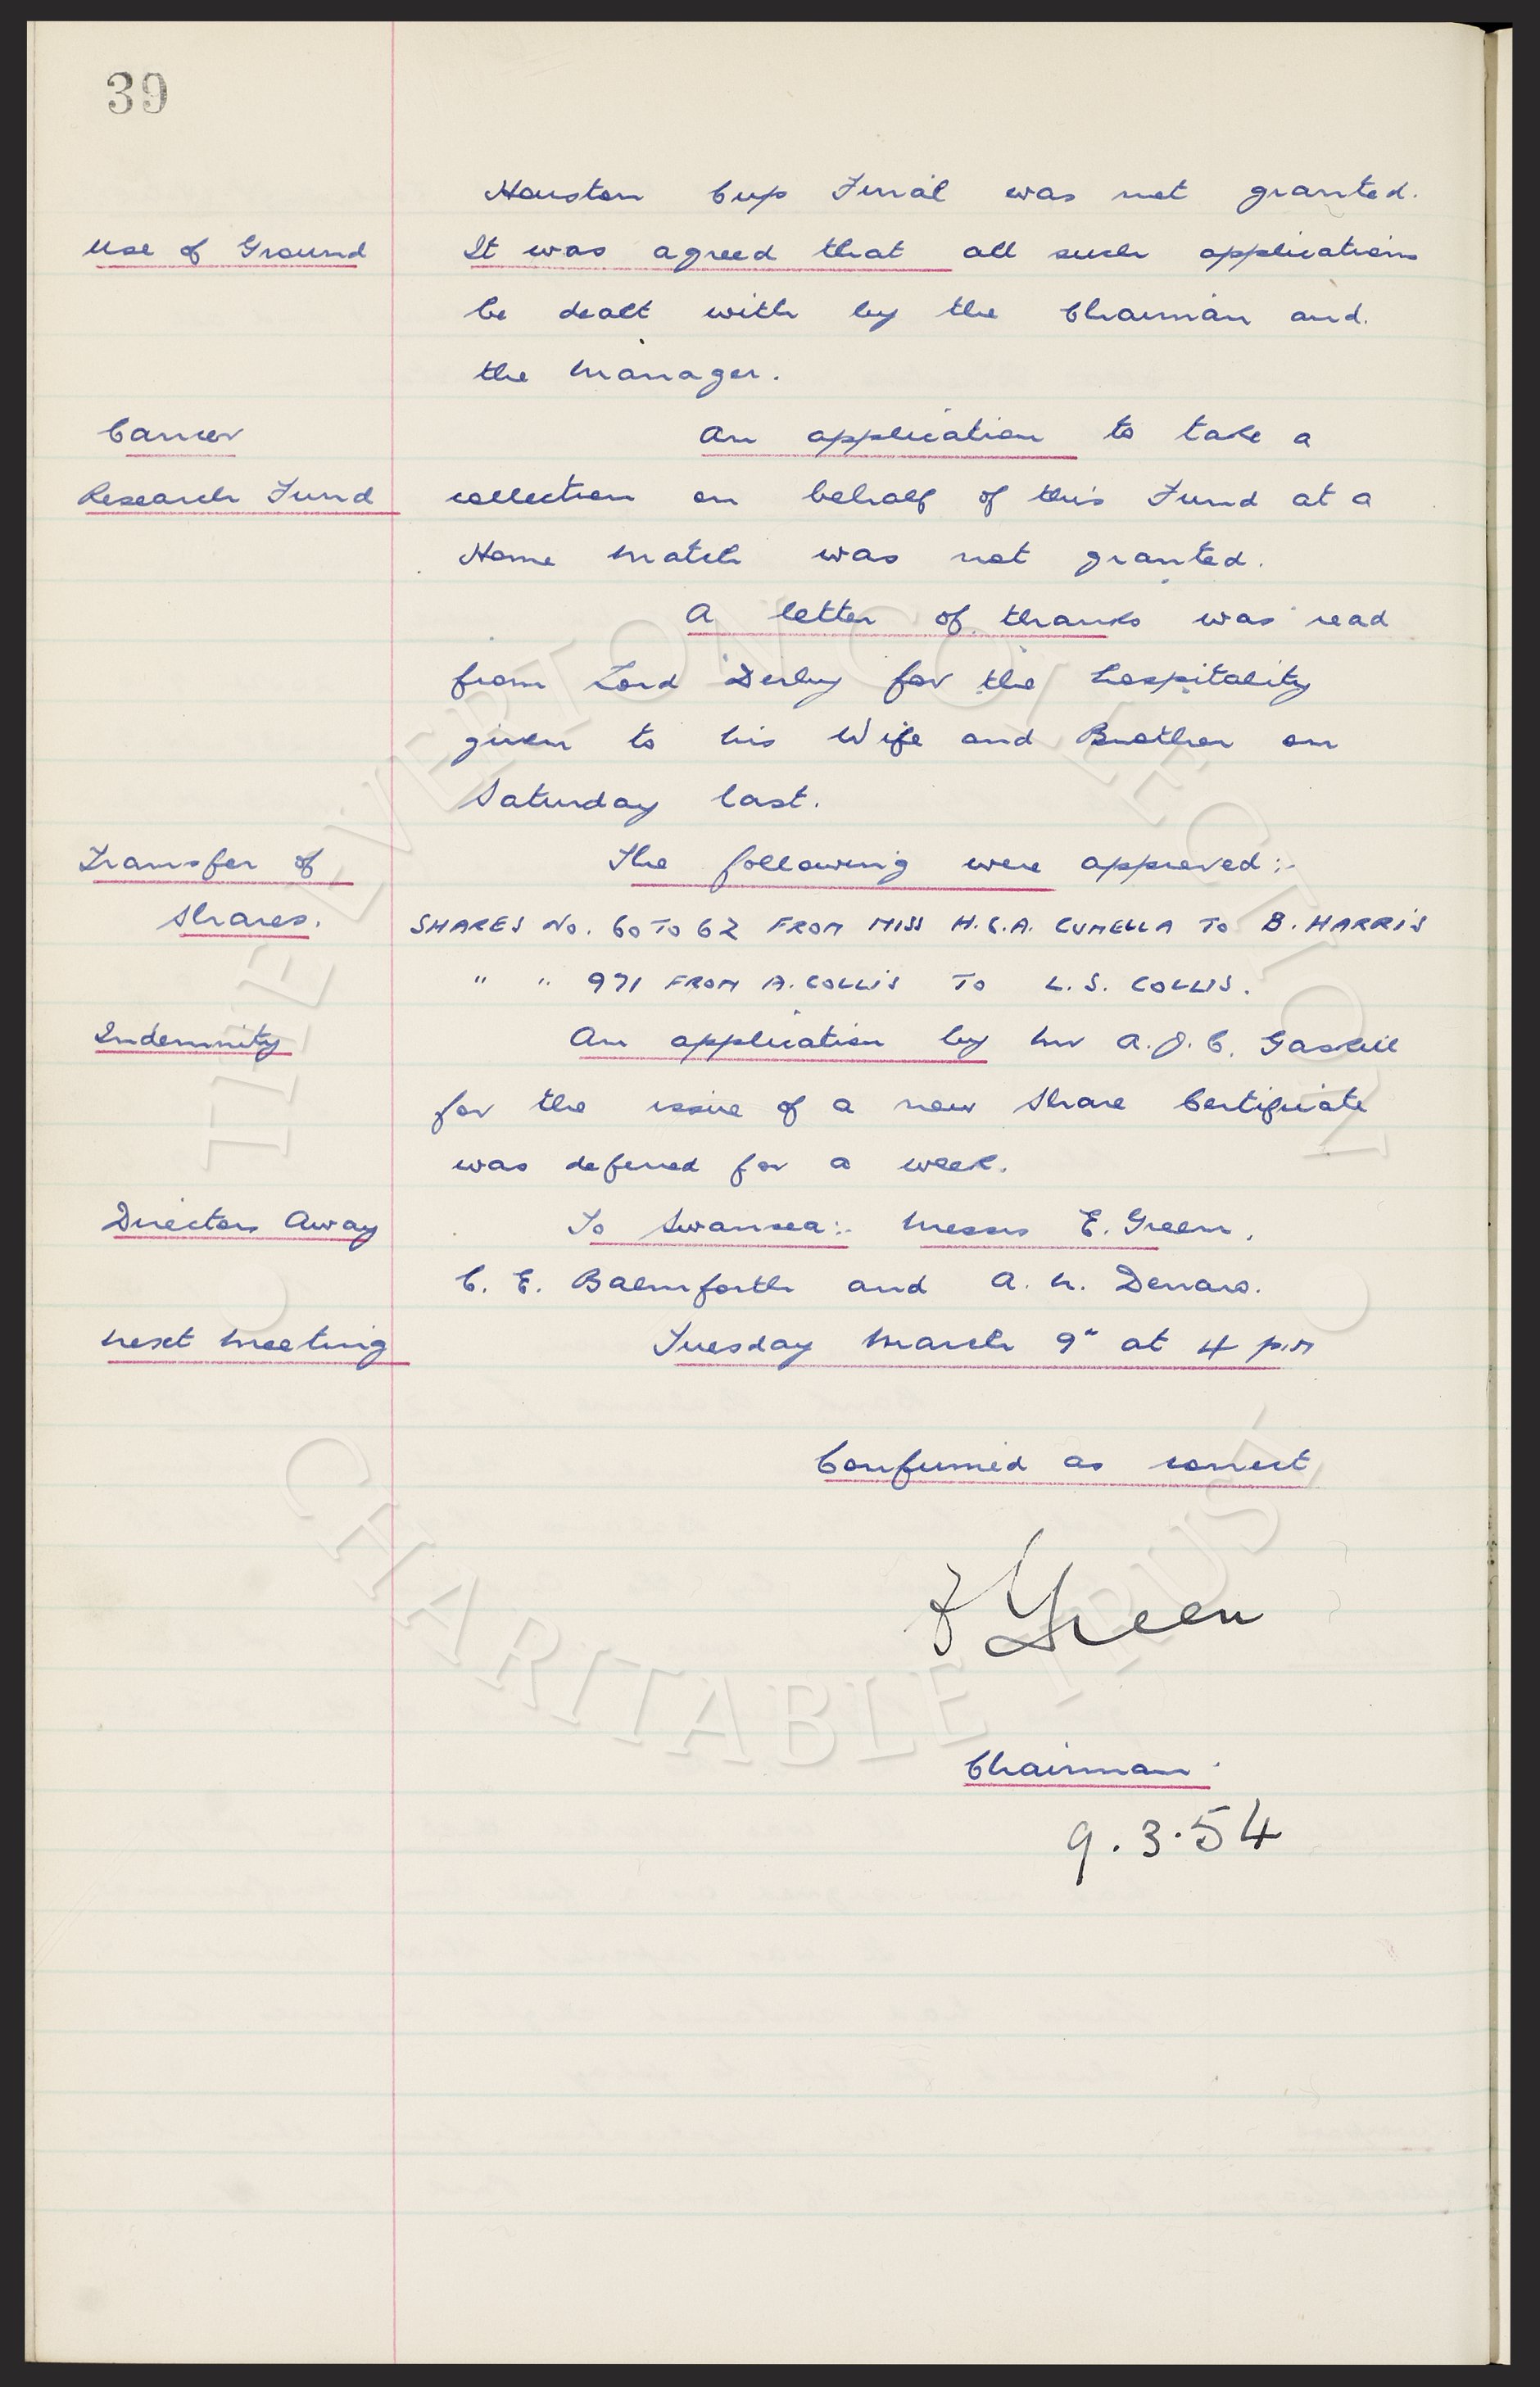 39
Houston Cup Final was not granted.
Use of Ground It was agreed that all such applications
be dealt with by the Chairman and
the Manager.
Cancer An application to take a
Research Fund collection on behalf of this Fund at a
Home Match was not granted.
A letter of thanks was read
from Lord Derby for the hospitality
given to his Wife and Brother on
Saturday last.
Transfer of The following were approved:-
Shares. SHARES No. 60 TO 62 FROM MISS H.C.A. CUMELLA TO B. HARRIS
" " 971 FROM A. COLLIS TO L.S. COLLIS.
Indemnity An application by Mr A.J.C. Gaskill
for the issue of a new Share Certificate
was deferred for a week.
Directors Away To Swansea:- Messrs E. Green,
C. E. Balmforth and A. N. Denaro.
Next Meeting Tuesday March 9" at 4 p.m
Confirmed as correct
Green
Chairman.
9.3.54
THE EVERTON COLLECTION
CHARITABLE TRUST